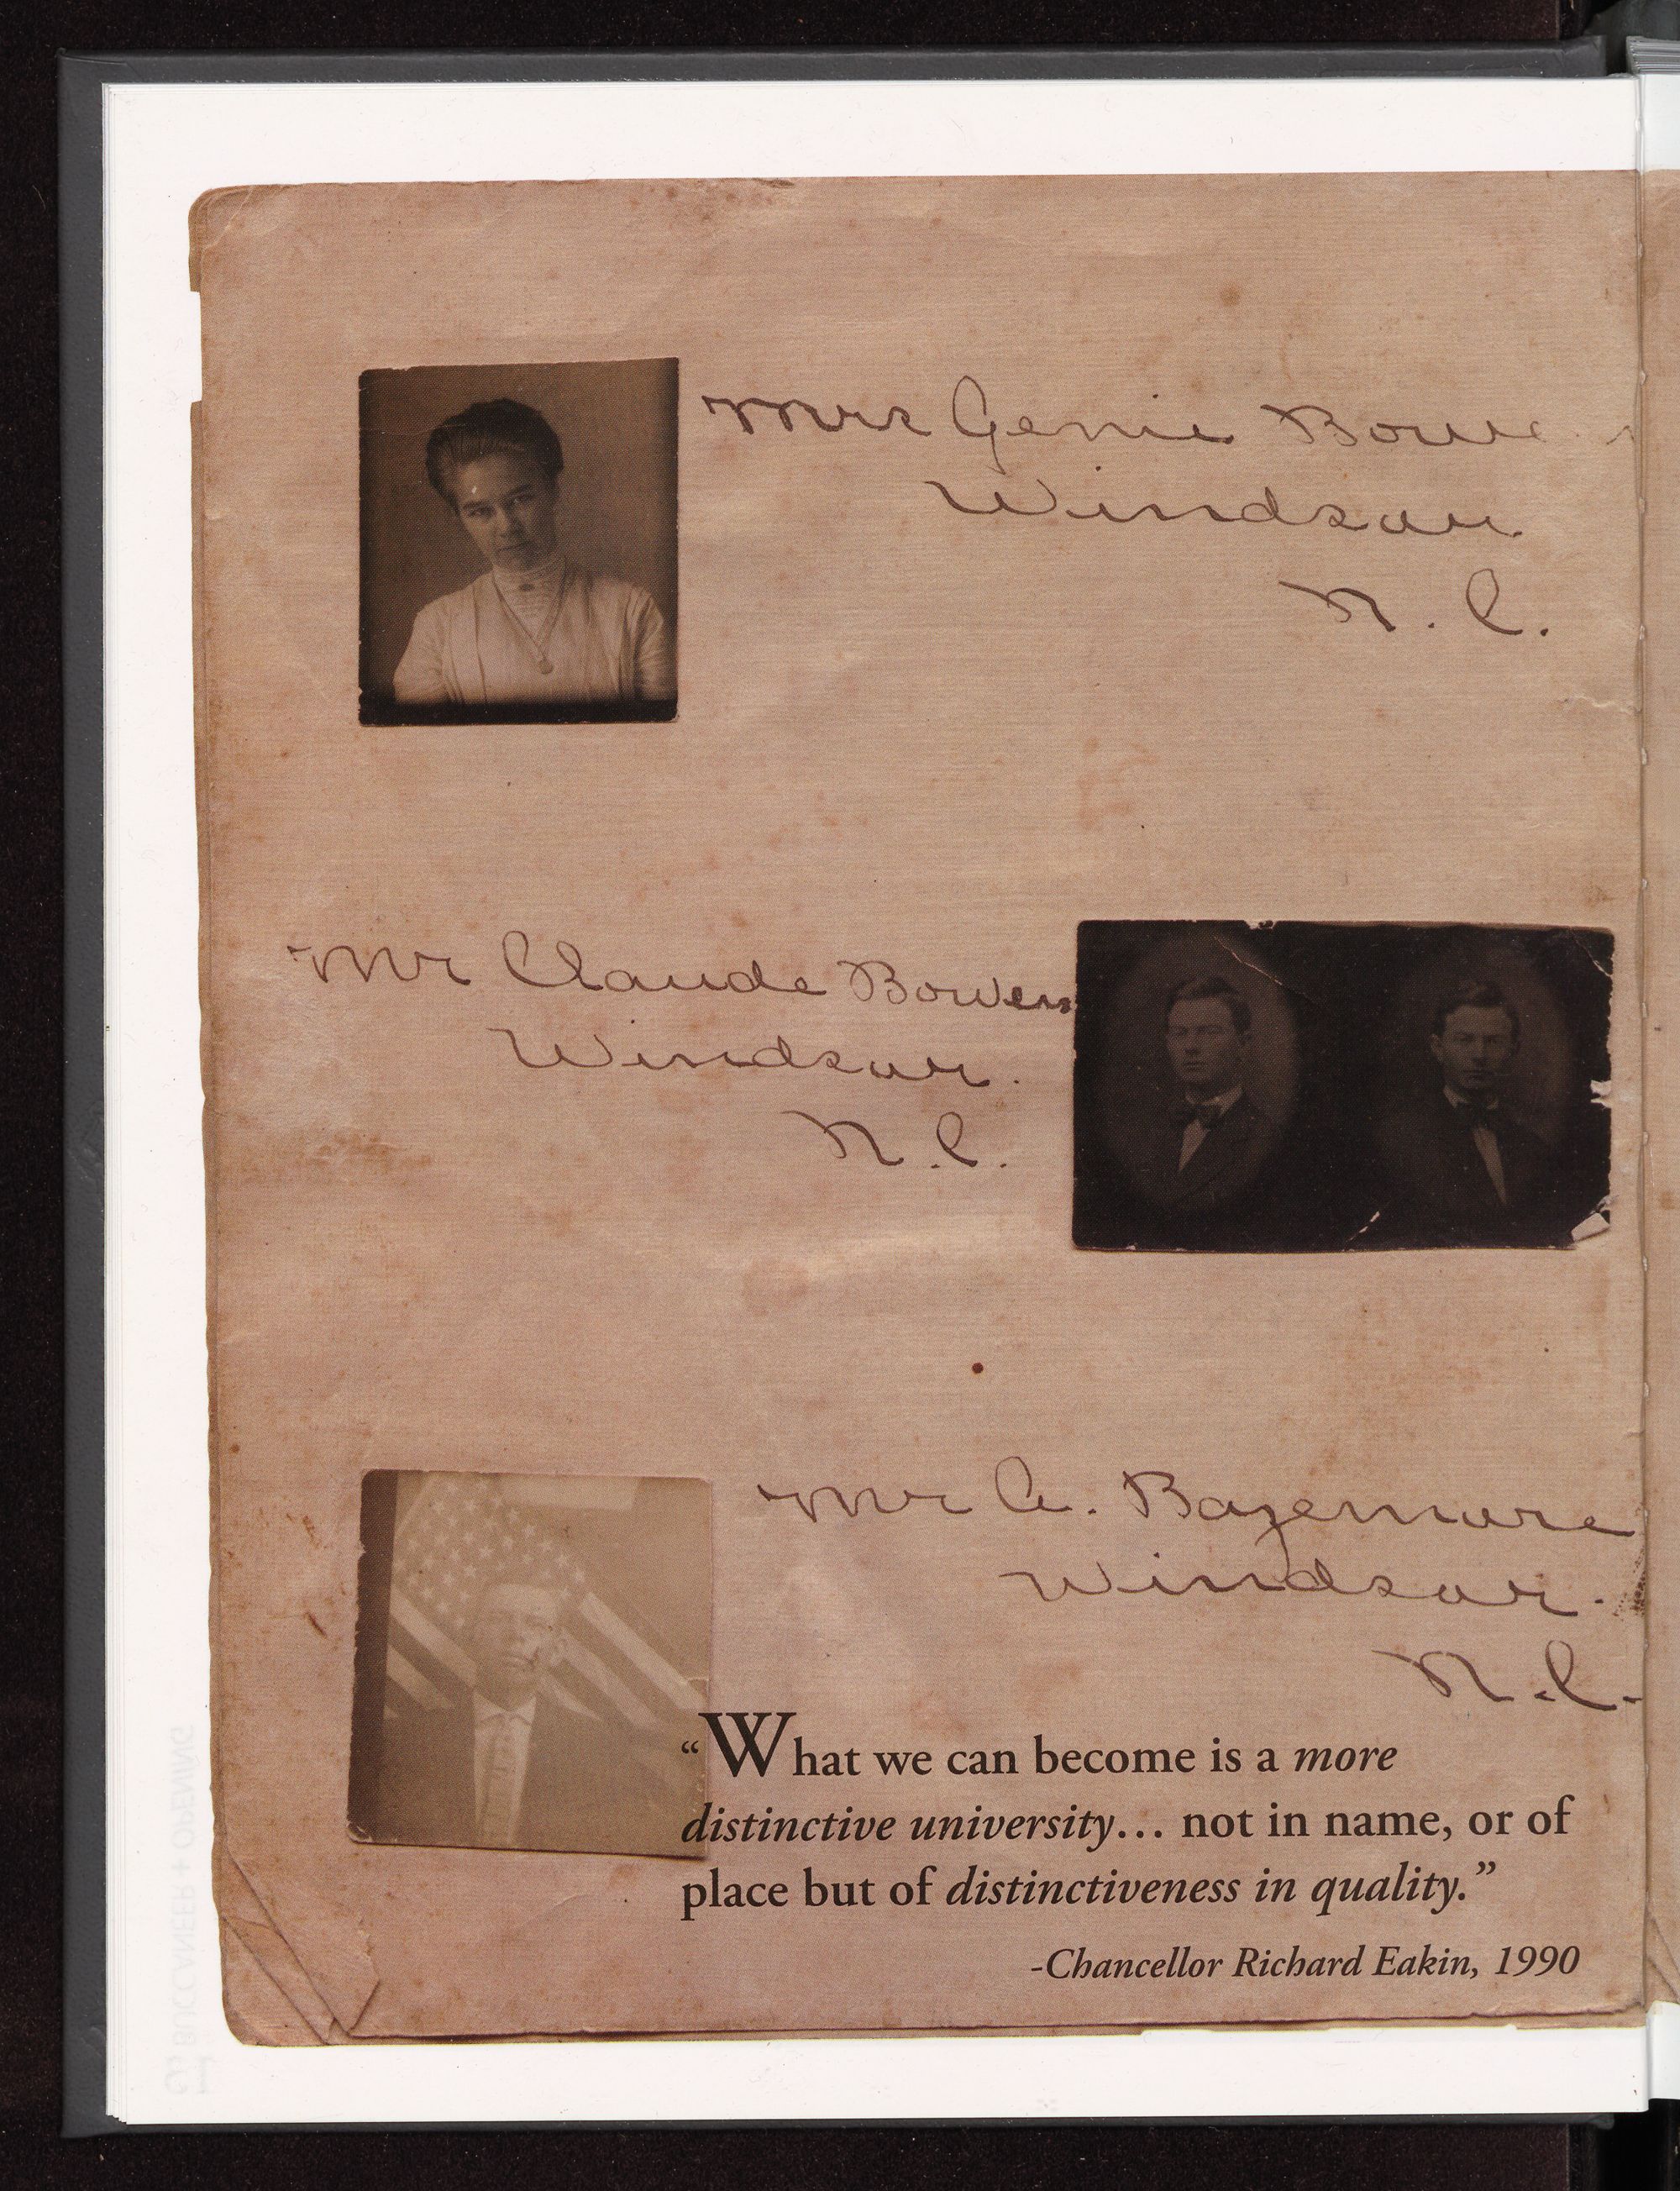 Mrs Genie Bowe
Windsor
N. C.
Mr Claude Bowens
Windsor.
N. C.
Mr C. Bazemore
Windsor.
N. C.
“What we can become is a more
distinctive university... not in name, or of
place but of distinctiveness in quality.”
-Chancellor Richard Eakin, 1990
BUCCANEER + OPENING